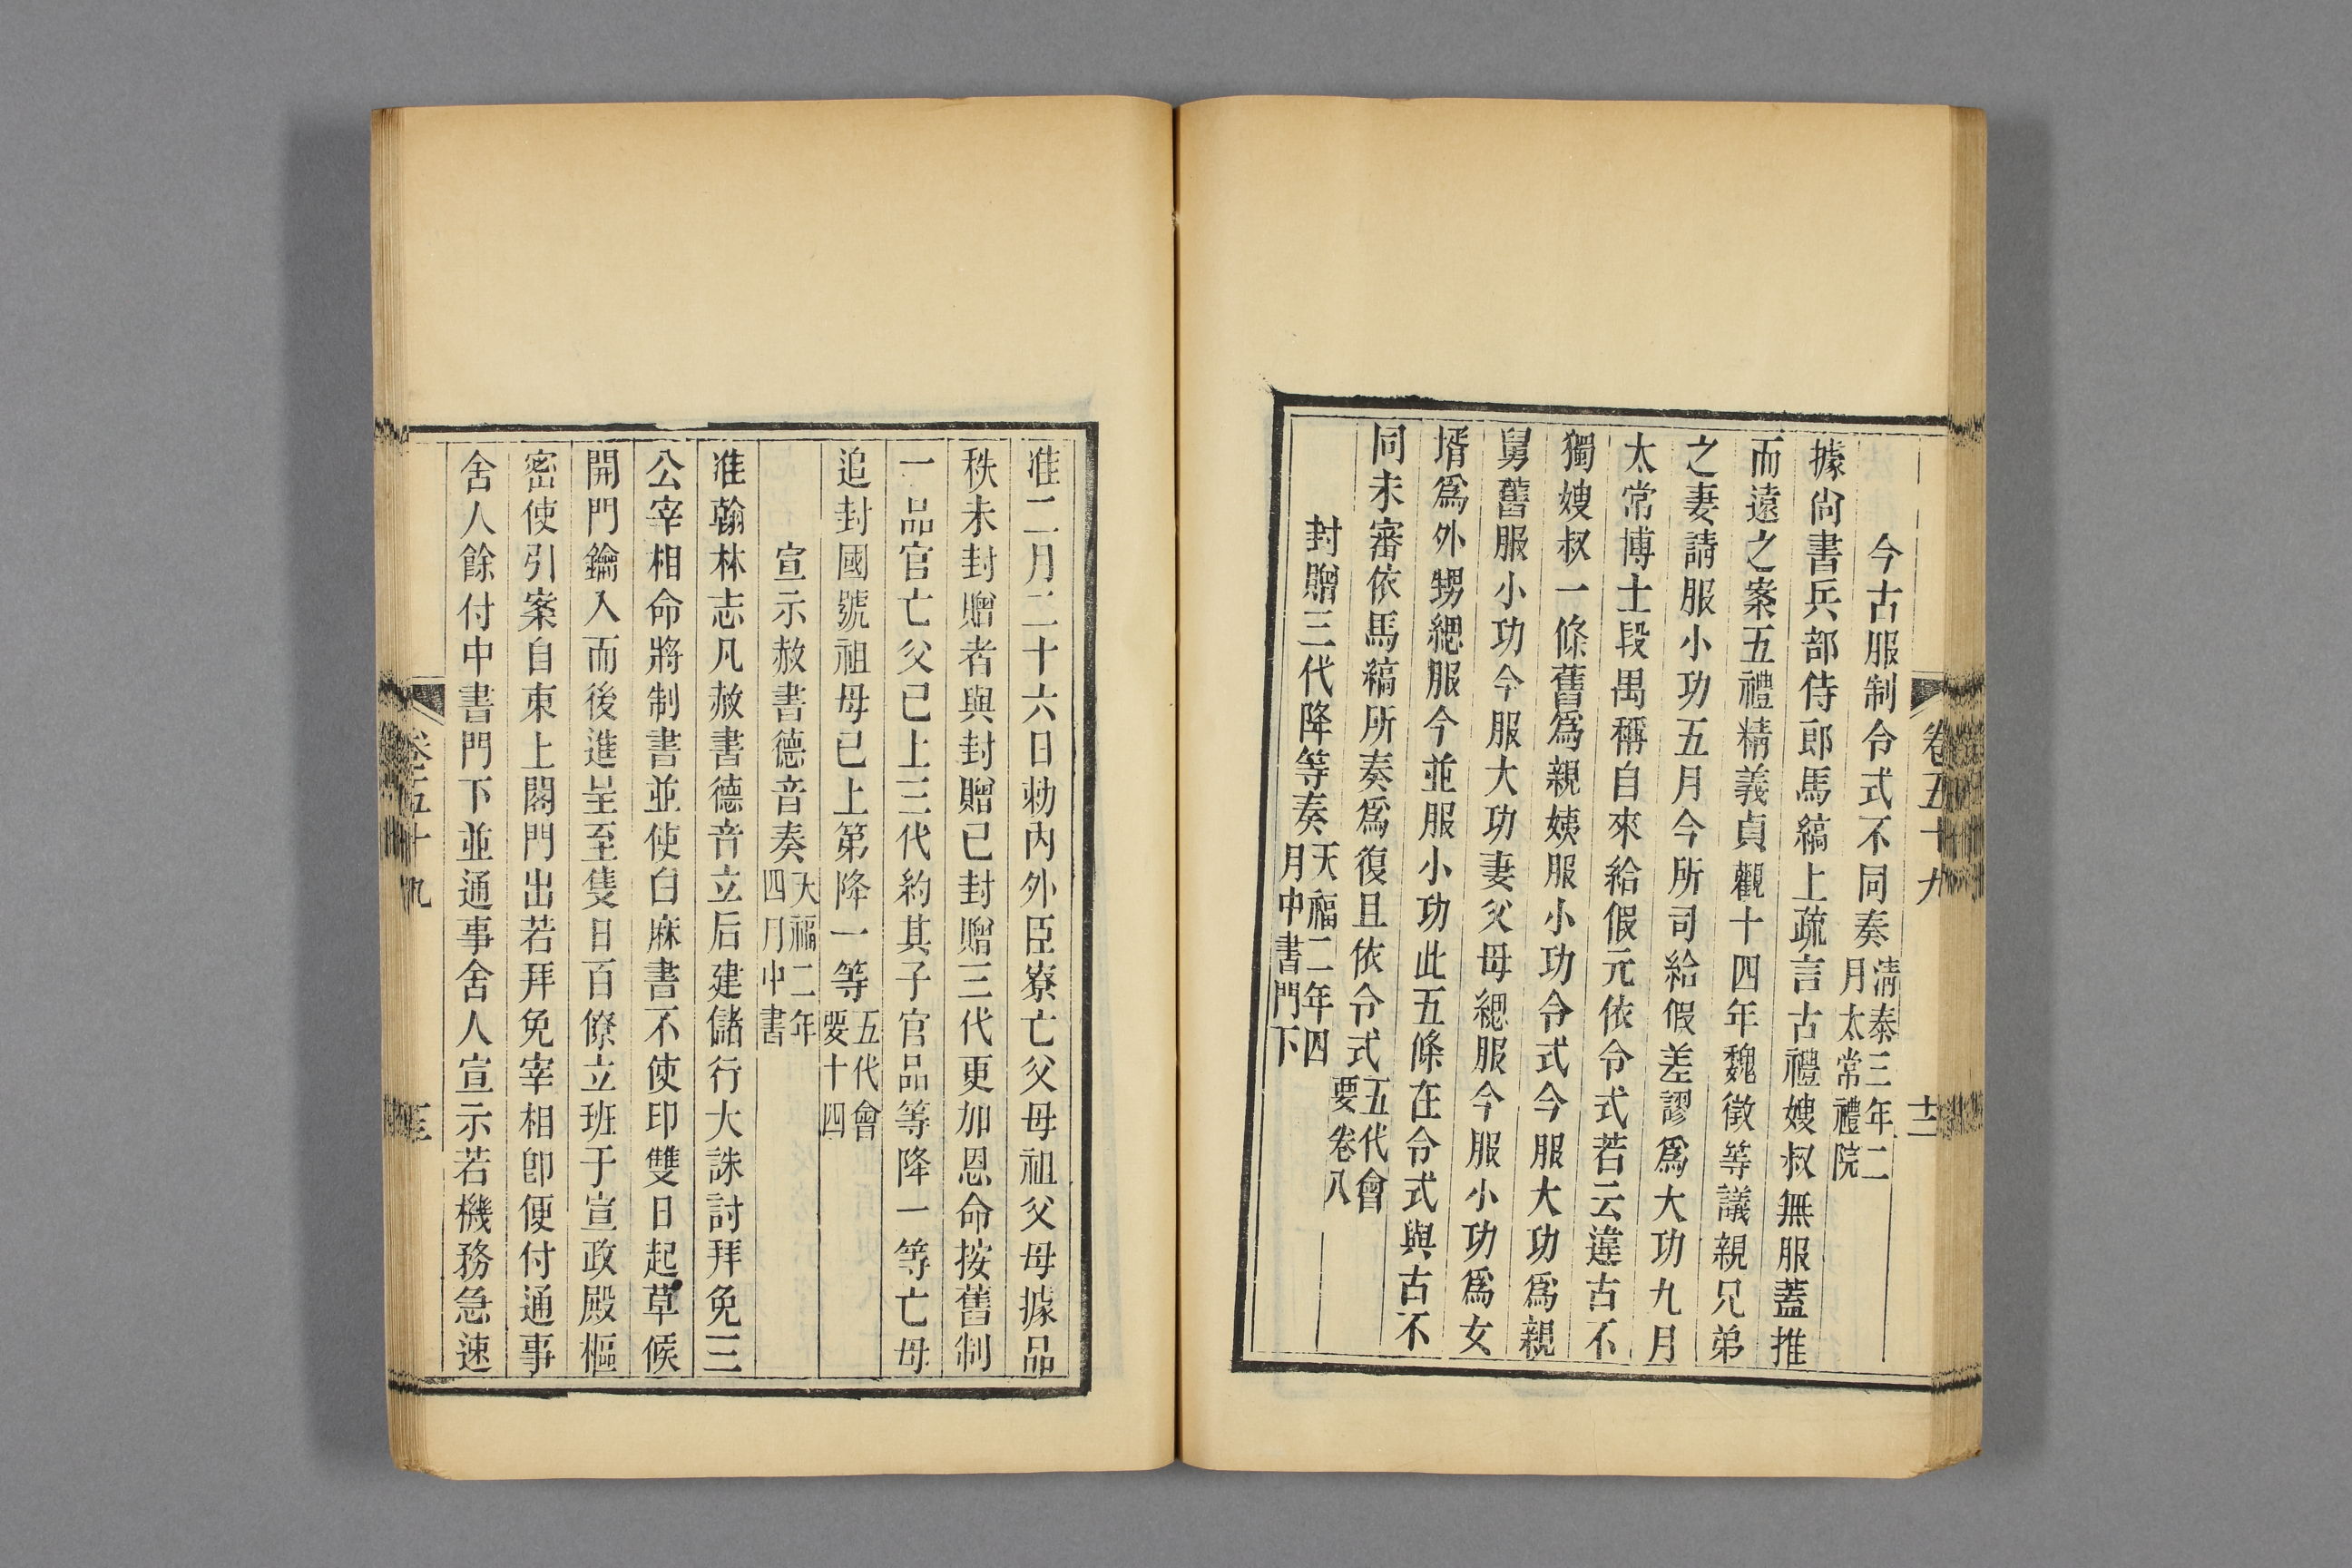 卷五十九
十二
今古服制令式不同奏清泰三年二
月太常禮院
據尙書兵部侍郎馬縞上疏言古禮嫂叔無服蓋推
而遠之案五禮精義貞觀十四年魏徵等議親兄弟
之妻請服小功五月今所司給假差謬爲大功九月
太常博士段禺稱自來給假元依令式若云違古不
獨嫂叔一條舊爲親姨服小功令式今服大功爲親
舅舊服小功今服大功妻父母緦服今服小功爲女
壻爲外甥緦服今並服小功此五條在令式與古不
同未審依馬縞所奏爲復且依令式五代會
要卷八
封贈三代降等奏天福二年四
月中書門下
准二月二十六日勑內外臣寮亡父母祖父母據品
秩未封贈者與封贈已封贈三代更加恩命按舊制
一品官亡父已上三代約其子官品等降一等亡母
追封國號祖母已上第降一等五代會
要十四
宣示赦書德音奏天福二年
四月中書
准翰林志凡赦書德音立后建儲行大誅討拜免三
公宰相命將制書並使白麻書不使印雙日起草候
開門鑰入而後進呈至隻日百僚立班于宣政殿樞
密使引案自東上閤門出若拜免宰相卽便付通事
舍人餘付中書門下並通事舍人宣示若機務急速
卷五十九